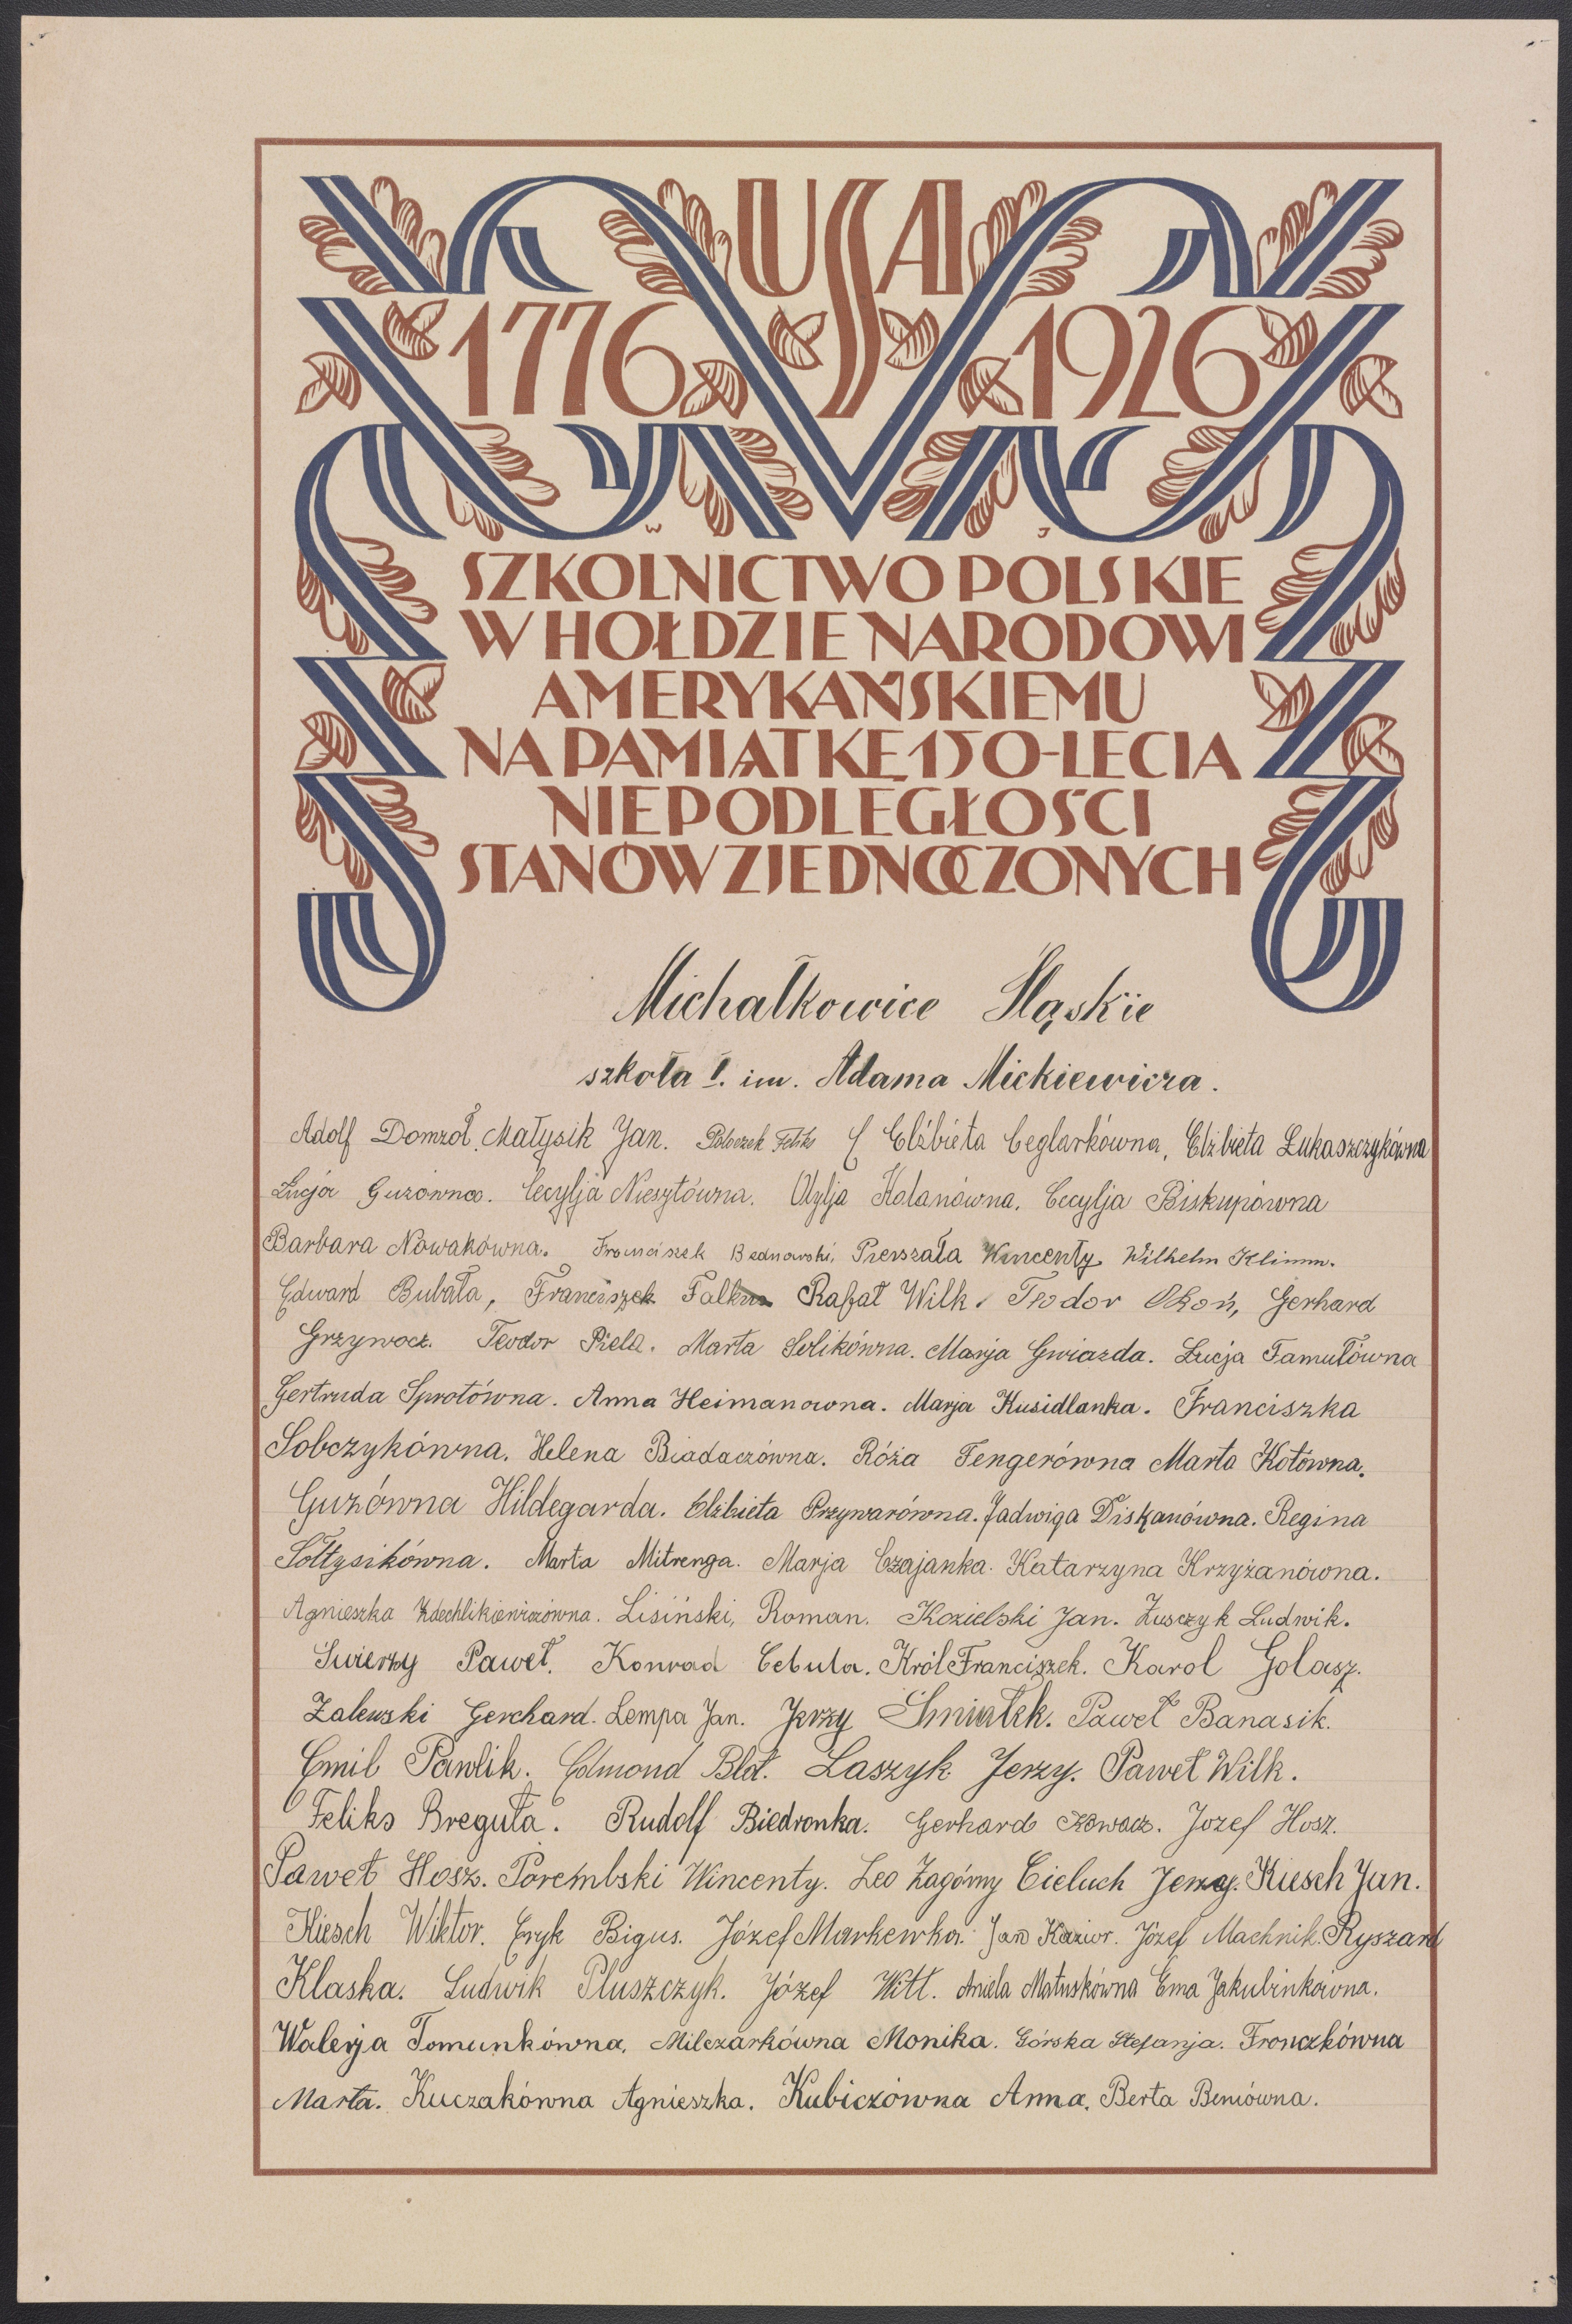 USA
1776 1926
W J
SZKOLNICTWO POLSKIE
W HOŁDZIE NARODOWI
AMERYKAŃSKIEMU
NA PAMIĄTKĘ 150-LECIA
NIEPODLEGŁOŚCI
STANÓW ZJEDNOCZONYCH
Michałkowice Śląskie
szkoła I. im. Adama Mickiewicza.
Adolf Domzoł. Małysik Jan. Poloczek Feliks Elżbieta Ceglarkówna, Elżbieta Łukaszczykówna
Łucja Guzówna. Cecylja Niesztówna. Otylja Kolanówna. Cecylja Biskupówna
Barbara Nowakówna. Franciszek Bednarski, Pierszała Wincenty. Wilhelm Klimm.
Edward Bubała, Franciszek Falkus Rafał Wilk. Teodor Okoń, Gerhard
Grzywocz. Teodor Piela. Marta Solikówna. Marja Gwiazda. Łucja Famułówna
Gertruda Sprotówna. Anna Heimanowna. Marja Kusidlanka. Franciszka
Sobczykówna. Helena Biadaczówna. Róża Fengerówna Marta Kotówna.
Guzówna Hildegarda. Elżbieta Przywarówna. Jadwiga Diskanówna. Regina
Sołtysikówna. Marta Mitrenga. Marja Czajanka. Katarzyna Krzyżanówna.
Agnieszka Zdechlikiewiczówna. Lisiński, Roman. Kozielski Jan. Zusczyk Ludwik.
Swierzy Paweł. Konrad Cebula. Król Franciszek. Karol Golasz.
Zalewski Gerchard. Lempa Jan. Jerzy Śmiałek. Paweł Banasik.
Emil Pawlik. Edmond Blat. Laszyk Jerzy. Paweł Wilk.
Feliks Breguła. Rudolf Biedronka. Gerhard Kowacz. Jozef Hosz.
Paweł Hosz. Porembski Wincenty. Leo Zagórny Cieluch Jerzy. Kiesch Jan.
Kiesch Wiktor. Eryk Bigus. Józef Markewka. Jan Kazior. Józef Machnik. Ryszard
Klaska. Ludwik Pluszczyk. Józef Witt. Aniela Matuskówna Ema Jakubinkówna.
Walerja Tomunkówna, Milczarkówna Monika. Górska Stefanja. Fronczkówna
Marta. Kuczakówna Agnieszka. Kubiczówna Anna. Berta Beniówna.